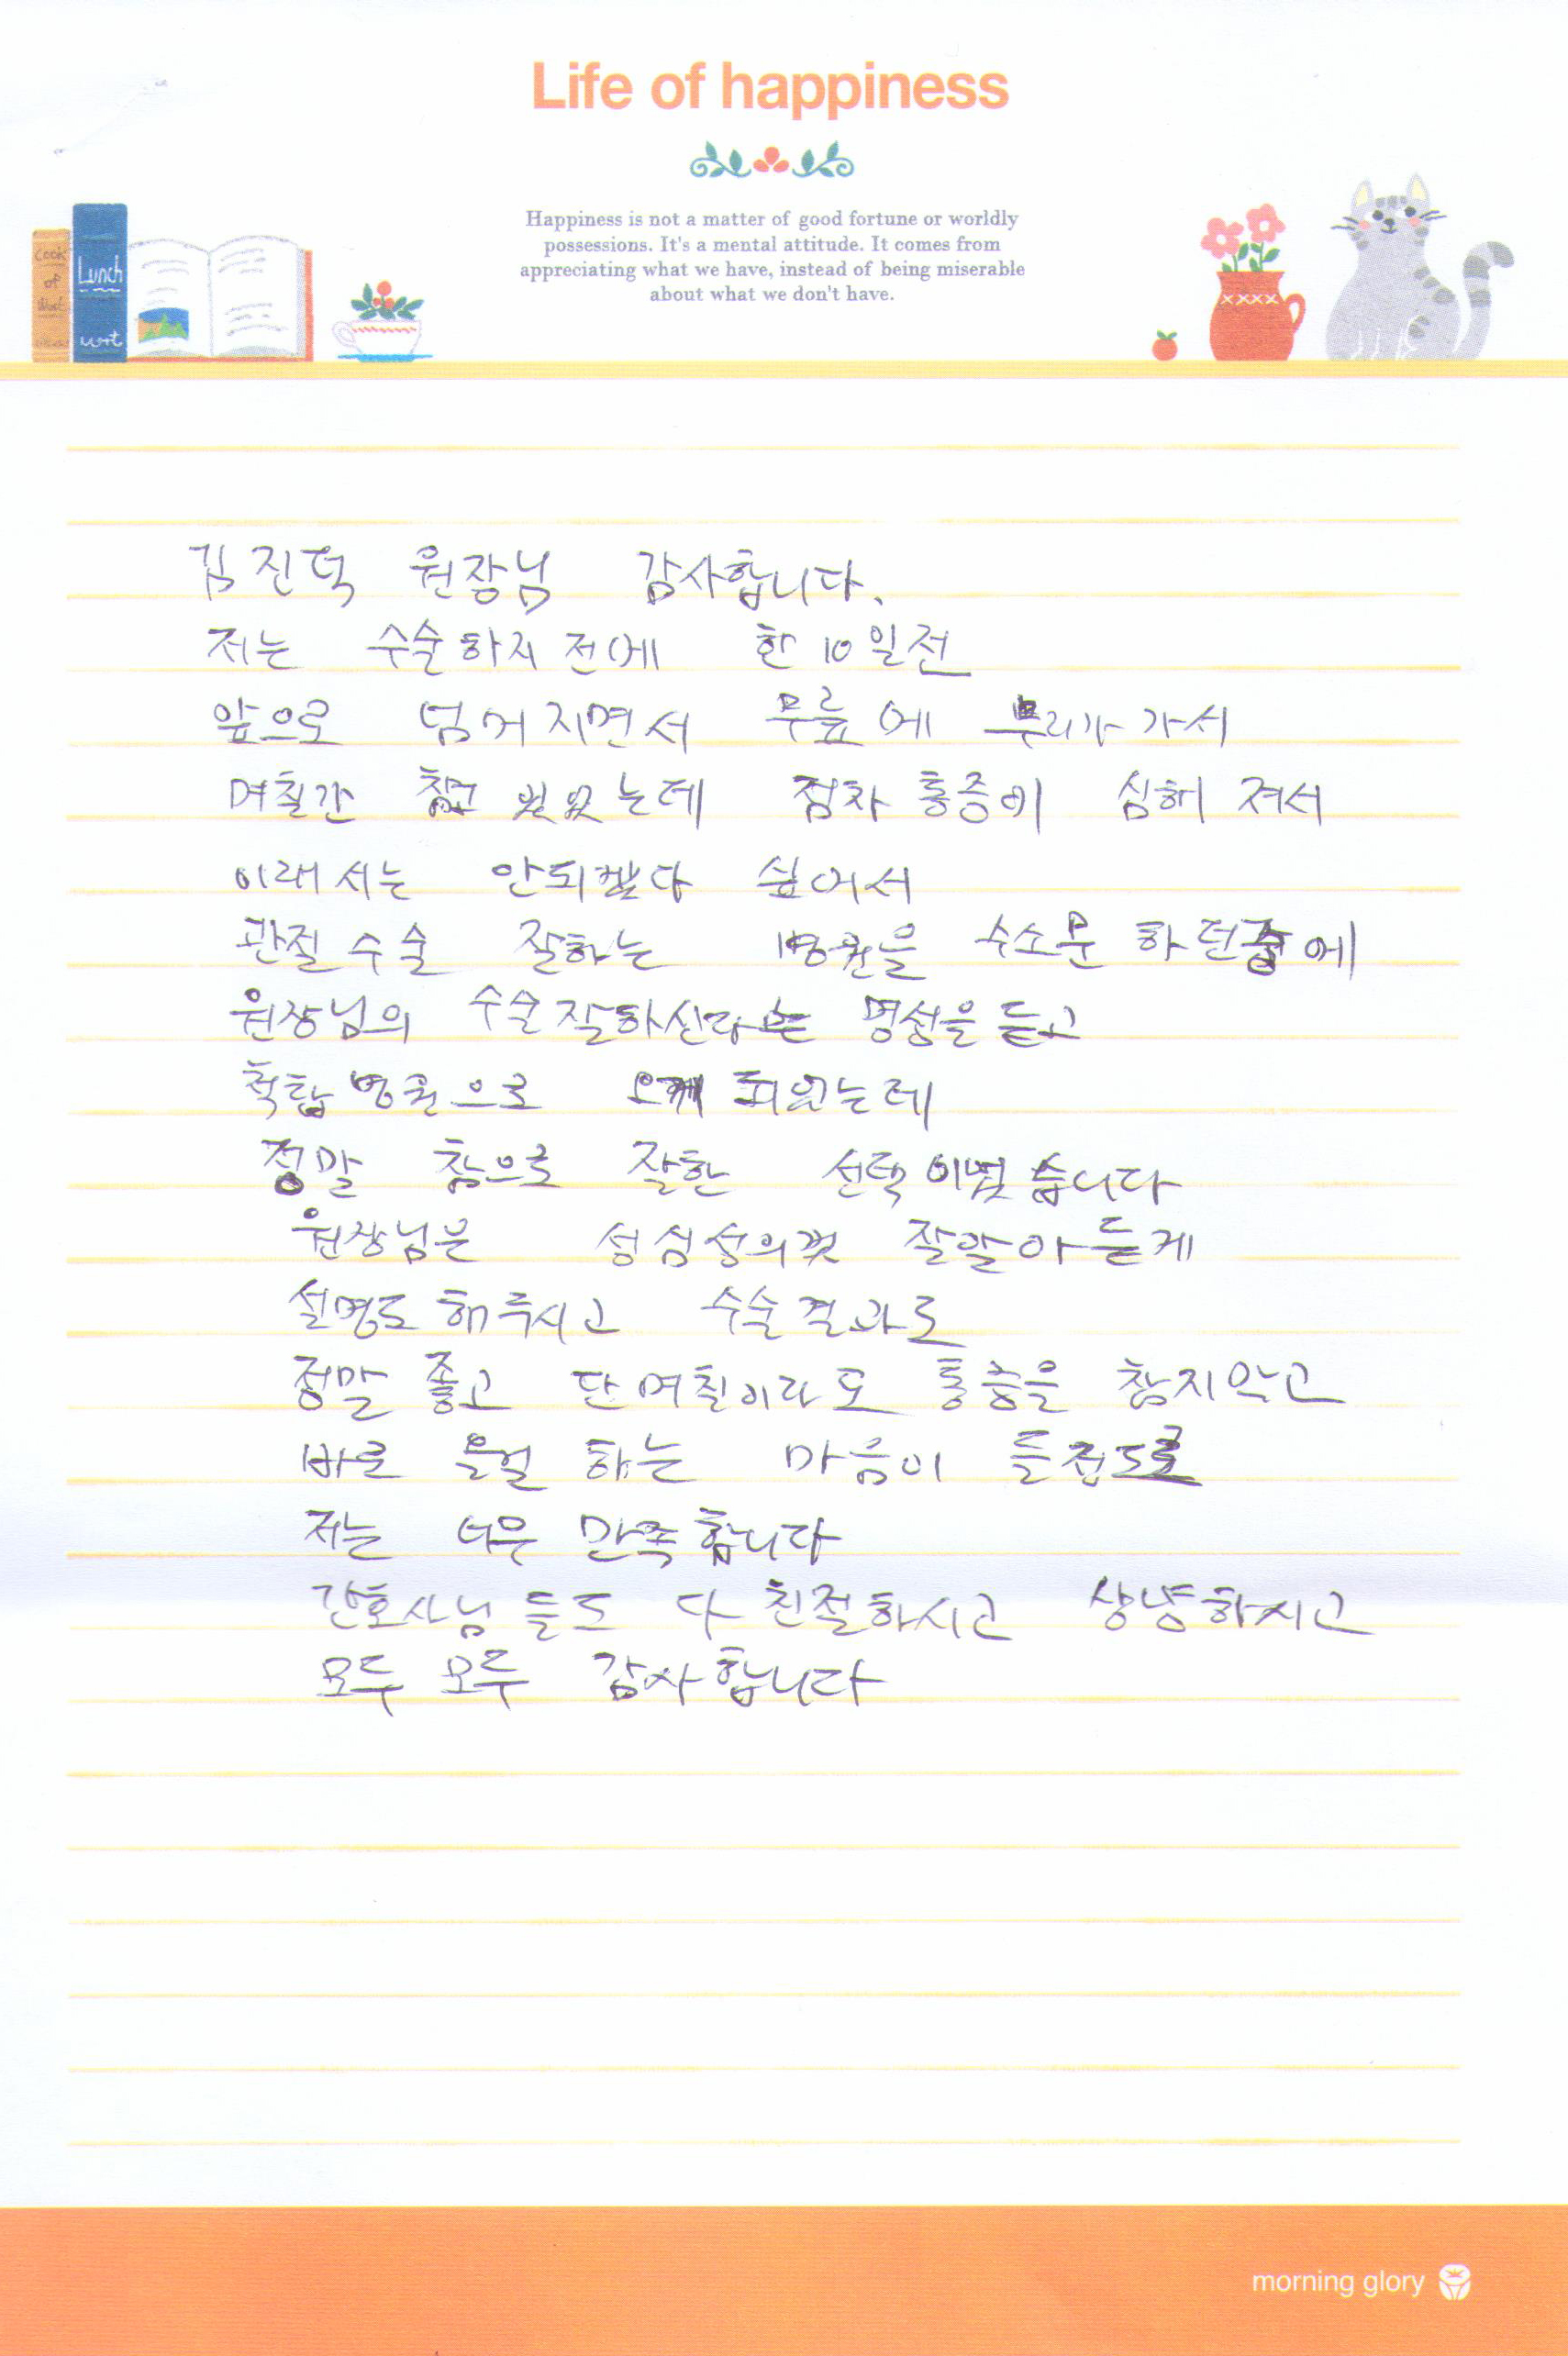 Life of happiness
Happiness is not a matter of good fortune or worldly
possessions. It's a mental attitude. It comes from
appreciating what we have, instead of being miserable
about what we don't have.
cook
of
Lunch
김진덕 원장님 감사합니다.
저는 수술하지 전에 한 10일전
앞으로 넘어지면서 무릎에 무리가 가서
며칠간 참고 있었는데 점차 통증이 심해 져서
이래서는 안되겠다 싶어서
관절수술 잘하는 병원을 수소문 하던중에
원장님의 수술잘하신다는 명성을 듣고
척탑병원으로 오게 되었는데
정말 참으로 잘한 선택이었습니다
원장님은 성심성의껏 잘알아듣게
설명도 해주시고 수술결과도
정말 좋고 단 며칠이라도 통증을 참지않고
바로 올걸 하는 마음이 들정도로
저는 너무 만족합니다
간호사님들도 다 친절하시고 상냥하시고
모두 모두 감사합니다
morning glory